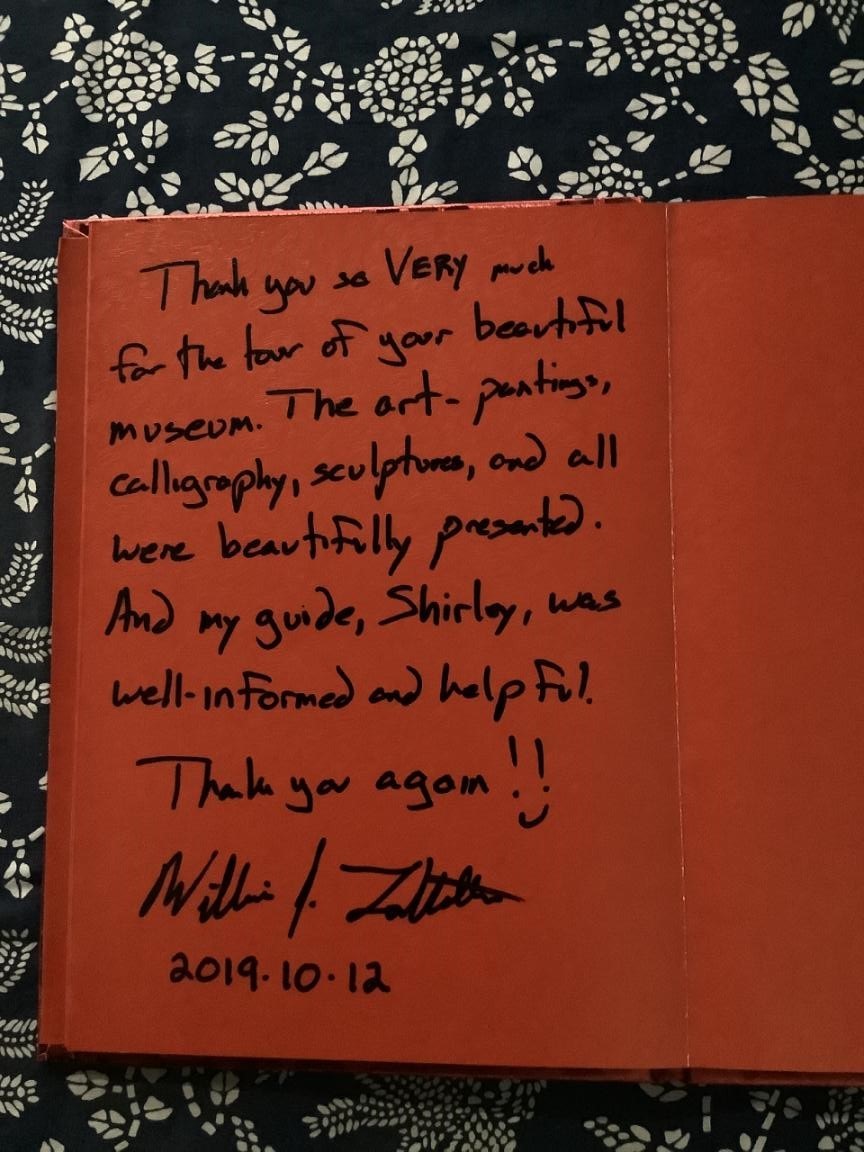 Thank you so VERY much
for the tour of your beautiful
museum. The art- pantings,
calligraphy, sculptures, and all
were beautifully presented.
And my guide, Shirley, was
well-informed and helpful.
Thank you again!!
J.
2019.10.12